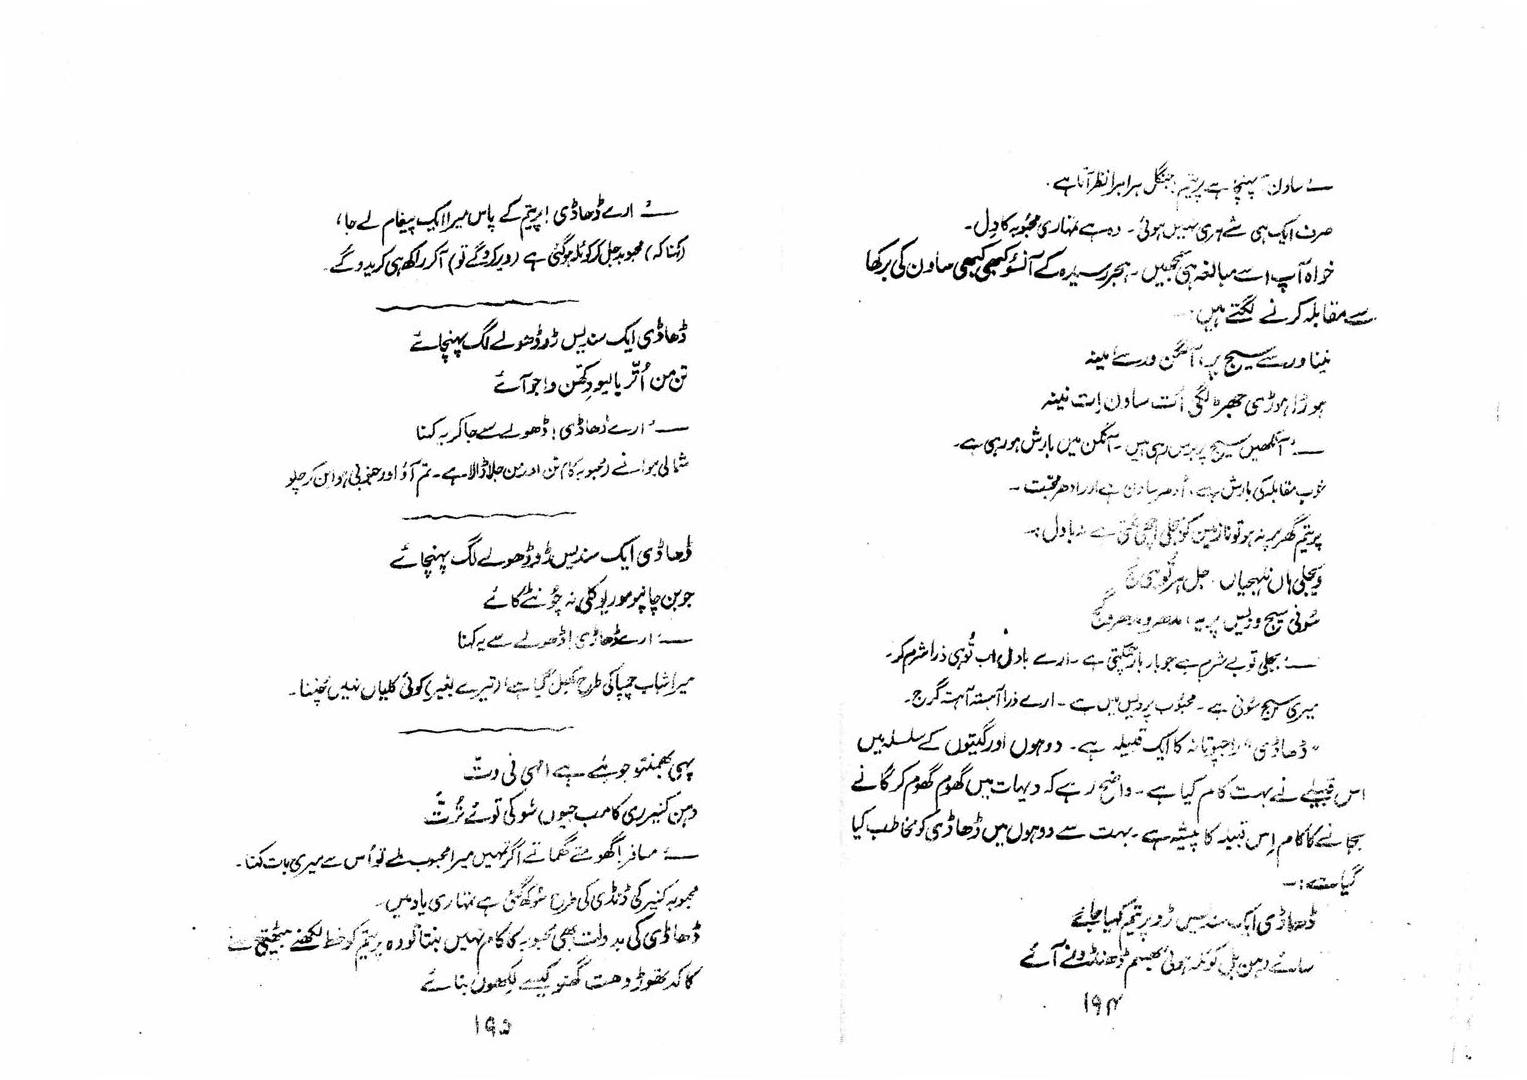 ــــ: ساون آ پہنچا ہے پریتم! جنگل ہرا بھرا نظر آتا ہے۔
صرف ایک ہی شے ہری نہیں ہوئی۔ وہ ہے تمہاری محبوبہ کا دل۔
خواہ آپ اسے مبالغہ ہی سمجھیں۔ ہجر رسیدہ کے آنسو کبھی کبھی ساون کی برکھا
سے مقابلہ کرنے لگتے ہیں:۔
نینا ورسے سیج پر، آنگن ورسے مینہ
ہوڑا ہوڑی جھڑ لگی اُت ساون اِت نینہ
ــــ: آنکھیں سیج پر برس رہی ہیں۔ آنگن میں بارش ہو رہی ہے۔
خوب مقابلہ کی بارش ہے، اُدھر ساون ہے اور ادھر محبت۔
پریتم گھر پر نہ ہو تو نازنین کو بجلی اچھی لگتی ہے نہ بادل:۔
ویجلی ہاں نلجیاں، جل ہر توہی
سُونی سیج ودیس پریہ، مدھرو مدھرو گج
ــــ: بجلی تو بے شرم ہے جو بار بار چمکتی ہے۔ ارے بادل اب تُو ہی ذرا شرم کر۔
میری سیج سُونی ہے۔ محبُوب پردیس میں ہے۔ ارے ذرا آہستہ آہستہ گرج۔
"ڈھاڈی" راجپوتانہ کا ایک قبیلہ ہے۔ دوہوں اور گیتوں کے سلسلہ میں
اس قبیلے نے بہت کام کیا ہے۔ واضح رہے کہ دیہات میں گھوم گھوم کر گانے
بجانے کا کام اِس قبیلہ کا پیشہ ہے۔ بہت سے دوہوں میں ڈھاڈی کو مخاطب کیا
گیا ہے:۔
ڈھاڈی ایک سندیس ڑو پریتم کہیا جائے
سائے دہن بل کوئلہ ہوئی بھسم ڈھنڈولے آئے
۱۹۴
ــــ: ارے ڈھاڈی! پریتم کے پاس میرا ایک پیغام لے جا،
(کہنا کہ) محبوبہ جل کر کوئلہ ہو گئی ہے (دیر کرو گے تو) آکر راکھ ہی کریدو گے۔
ڈھاڈی ایک سندیس ڑو ڈھولے لگ پہنچائے
تن من اُتر بالیو دکھن واجو آئے
ــــ: ارے ڈھاڈی! ڈھولے سے جا کر یہ کہنا
شمالی ہوا نے محبوبہ کا تن اور من جلا ڈالا ہے۔ تم آؤ اور جنوبی ہوا بن کر چلو
ڈھاڈی ایک سندیس ڑو ڈھولے لگ پہنچائے
جوبن چانپو موریو کلی نہ چُونٹے کائے
ــــ: ارے ڈھاڈی! ڈھولے سے یہ کہنا
میرا شباب چمپا کی طرح کھل گیا ہے (تیرے بغیر) کوئی کلیاں نہیں چُنتا۔
پہی بھمنتو جو ملے ہے انہی نی وتّ
دہن کنیر ری کامب جیوں سُوکی توئے سُرتّ
ــــ: مسافر! گھومتے گھماتے اگر تمہیں میرا محبوب ملے تو اُس سے میری بات کہنا۔
محبوبہ کنیر کی ڈنڈی کی طرح سُوکھ گئی ہے تمہاری یاد میں۔
ڈھاڈی کی بدولت بھی محبوبہ کا کام نہیں بنتا تو وہ پریتم کو خط لکھنے بیٹھتی ہے
کاگد تھوڑو ہت گھنو کیسے لکھوں بنائے
۱۹۵